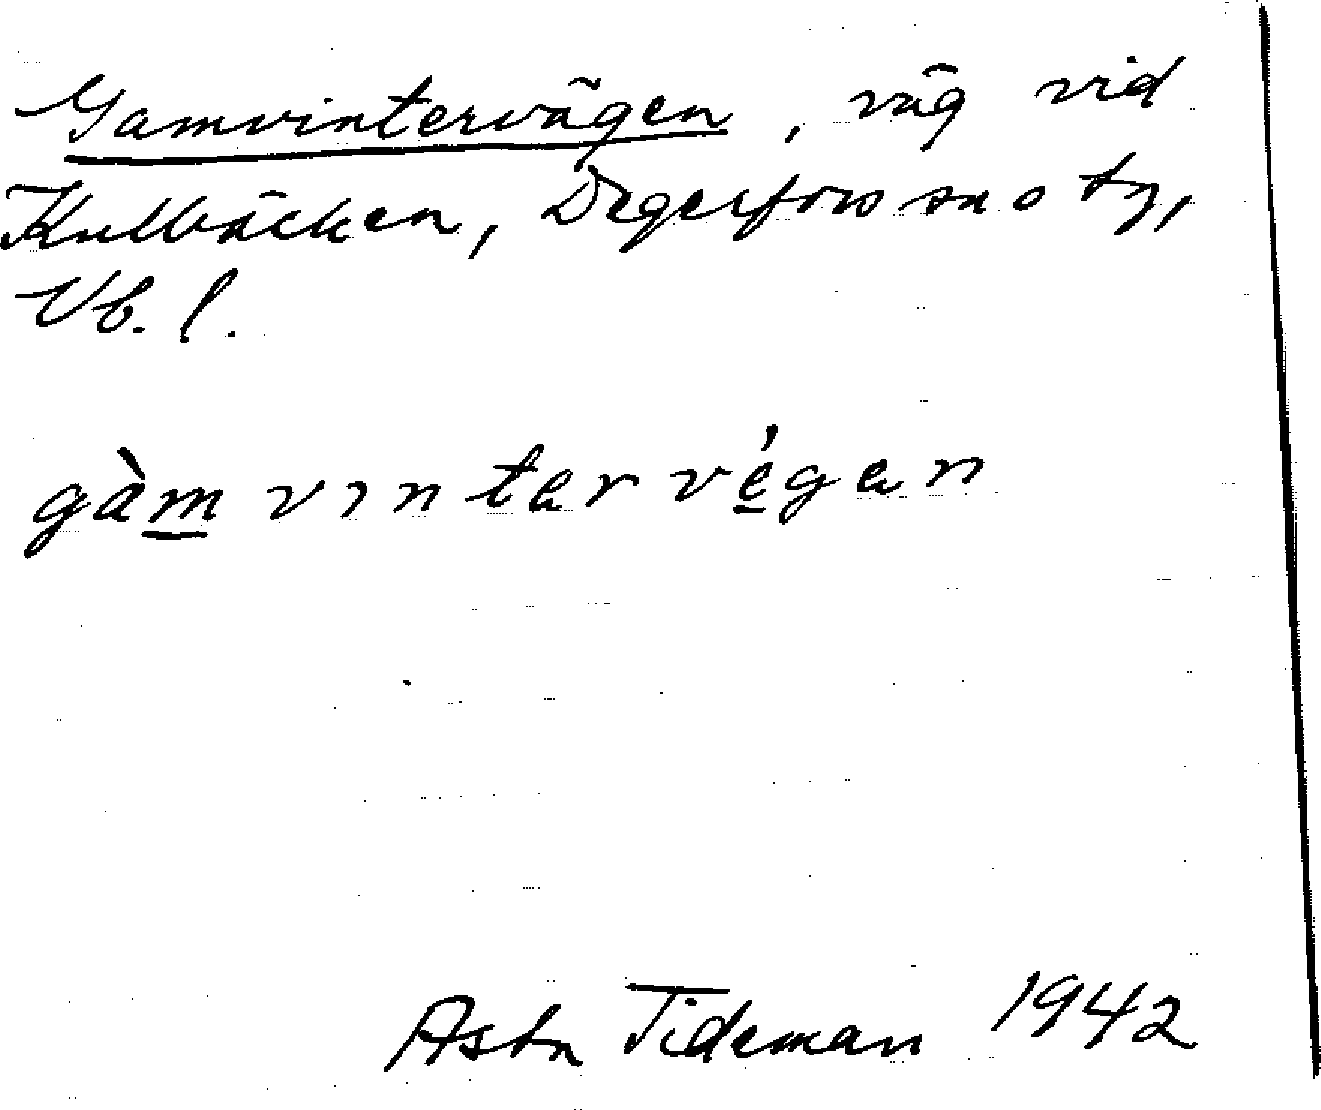 Gamvintervägen, väg vid
Kullbäcken, Degerfors sn o tg,
Vb. l.
gàm vintervégen
Asta Tideman 1942